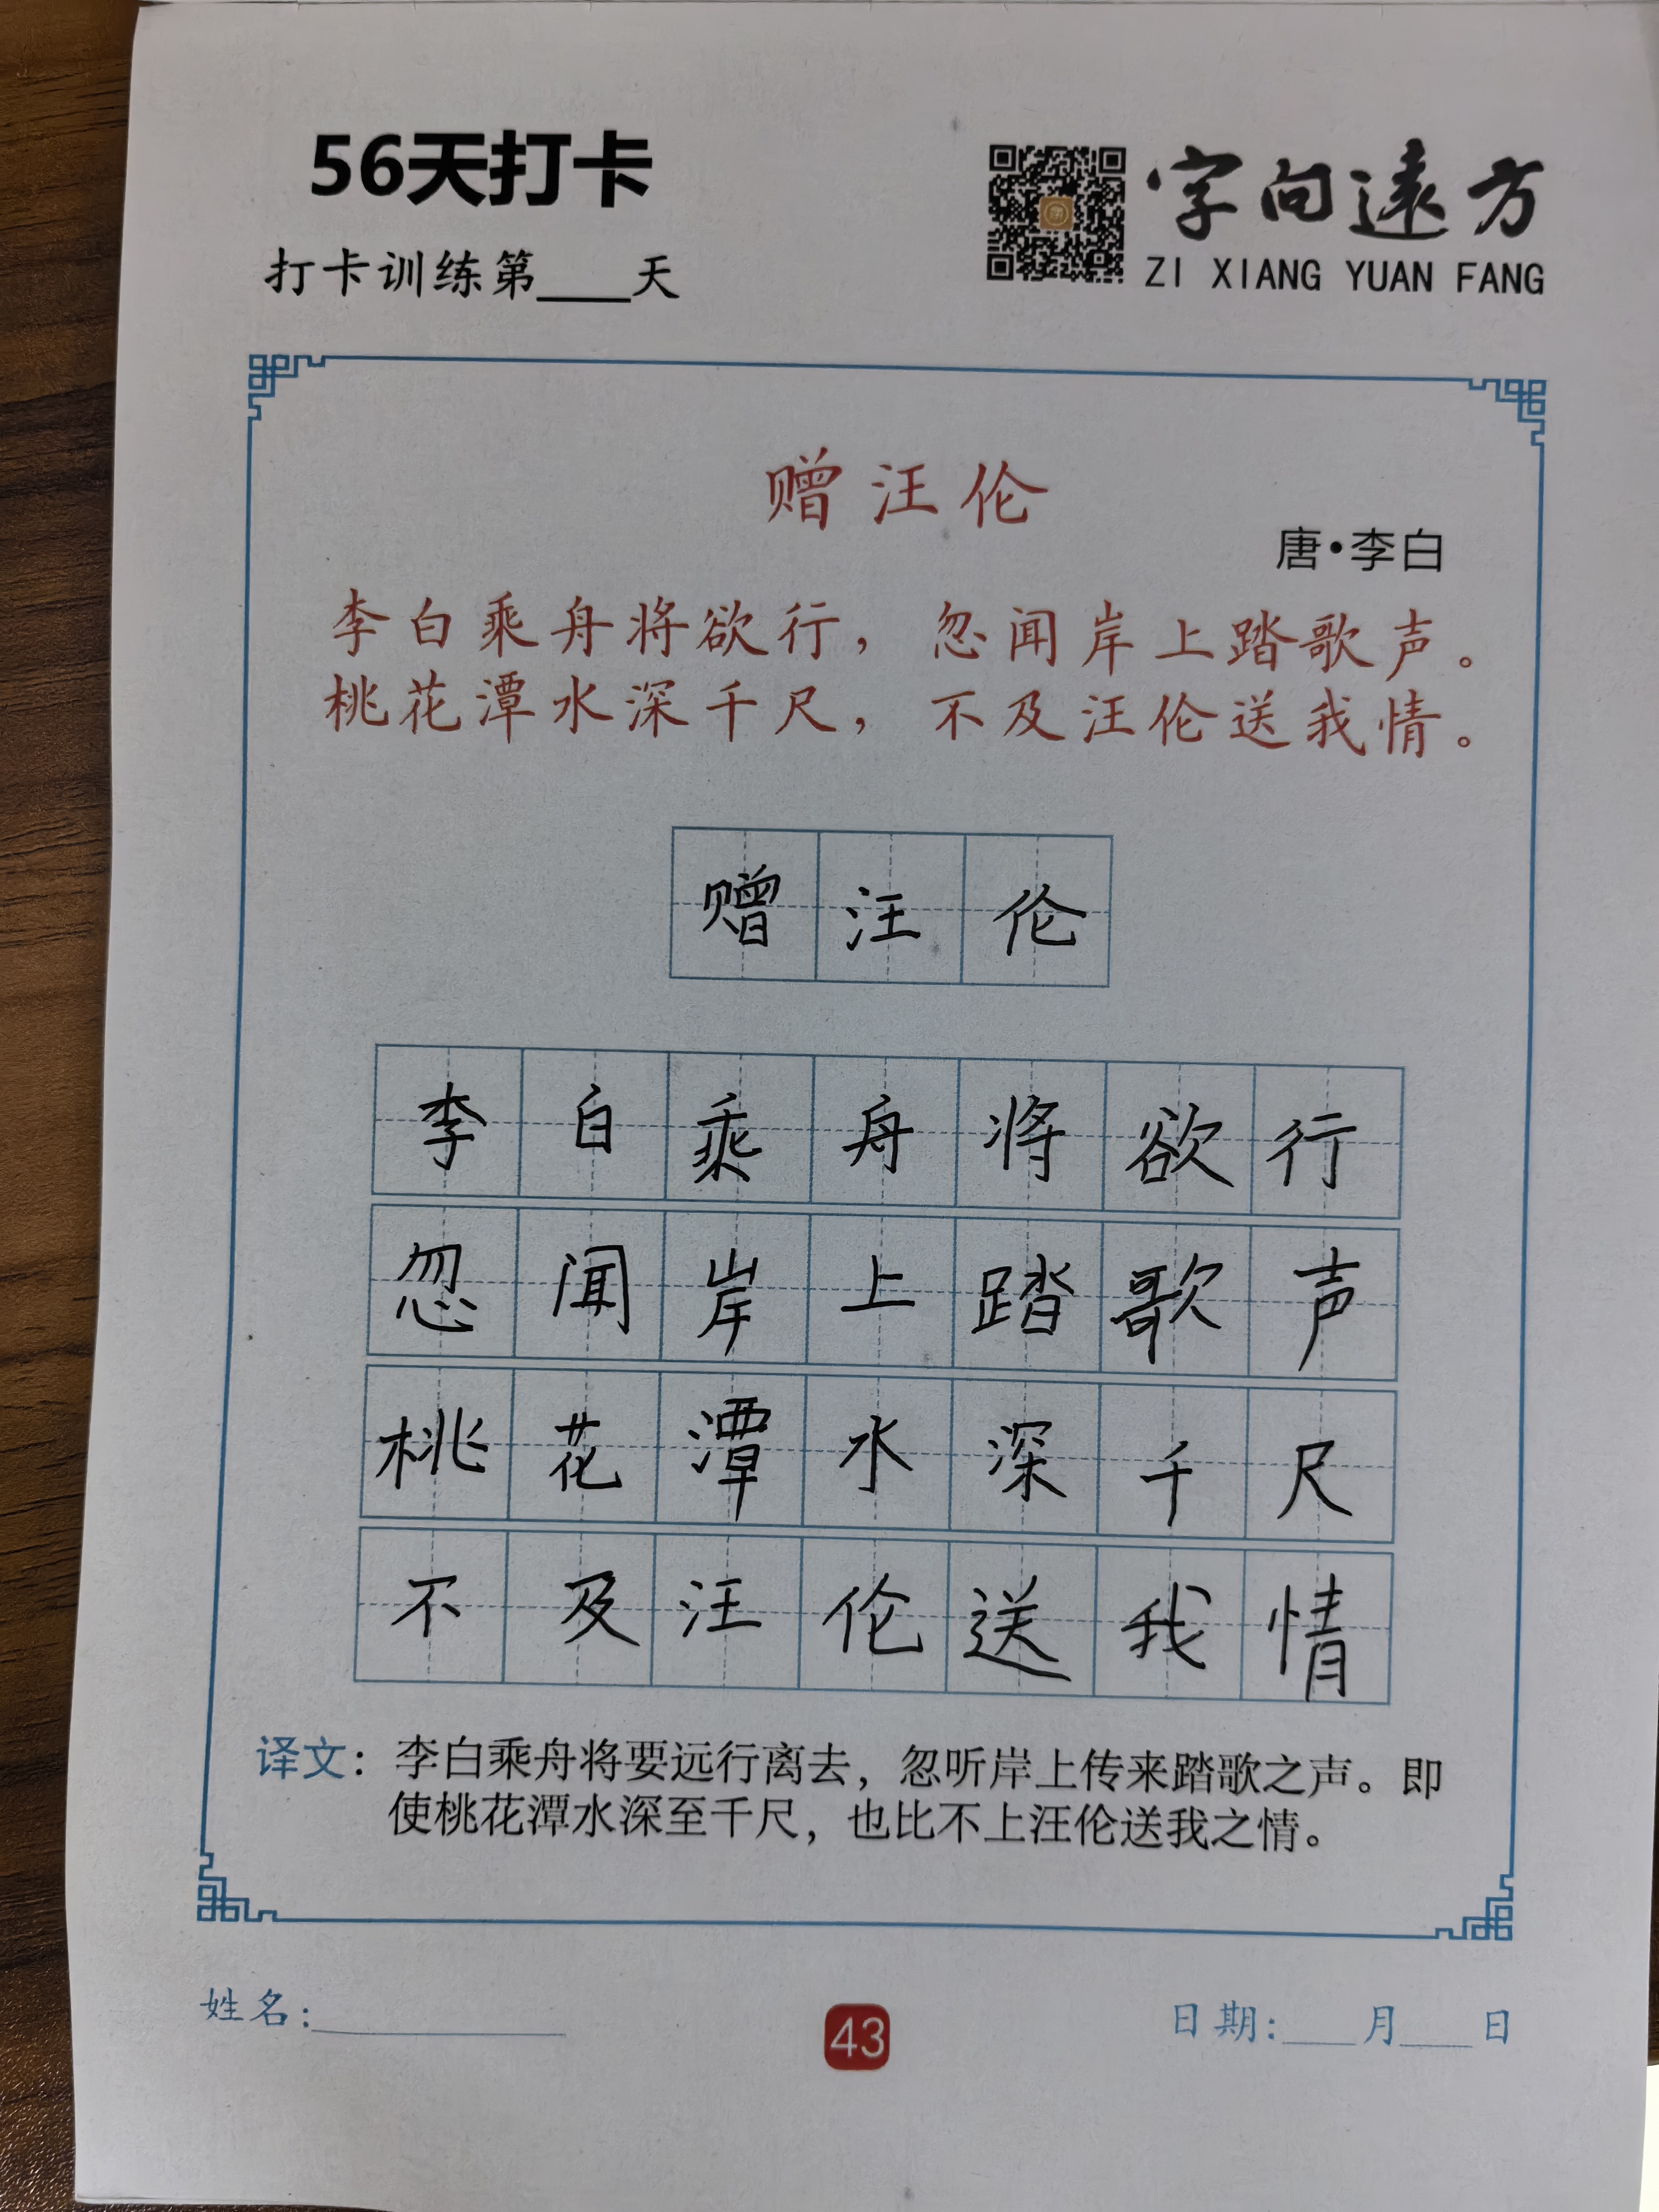 56天打卡
打卡训练第____天
字向遠方
ZI XIANG YUAN FANG
赠汪伦
唐·李白
李白乘舟将欲行，忽闻岸上踏歌声。
桃花潭水深千尺，不及汪伦送我情。
赠汪伦
李白乘舟将欲行
忽闻岸上踏歌声
桃花潭水深千尺
不及汪伦送我情
译文：李白乘舟将要远行离去，忽听岸上传来踏歌之声。即
使桃花潭水深至千尺，也比不上汪伦送我之情。
姓名:__________
43
日期:___月___日